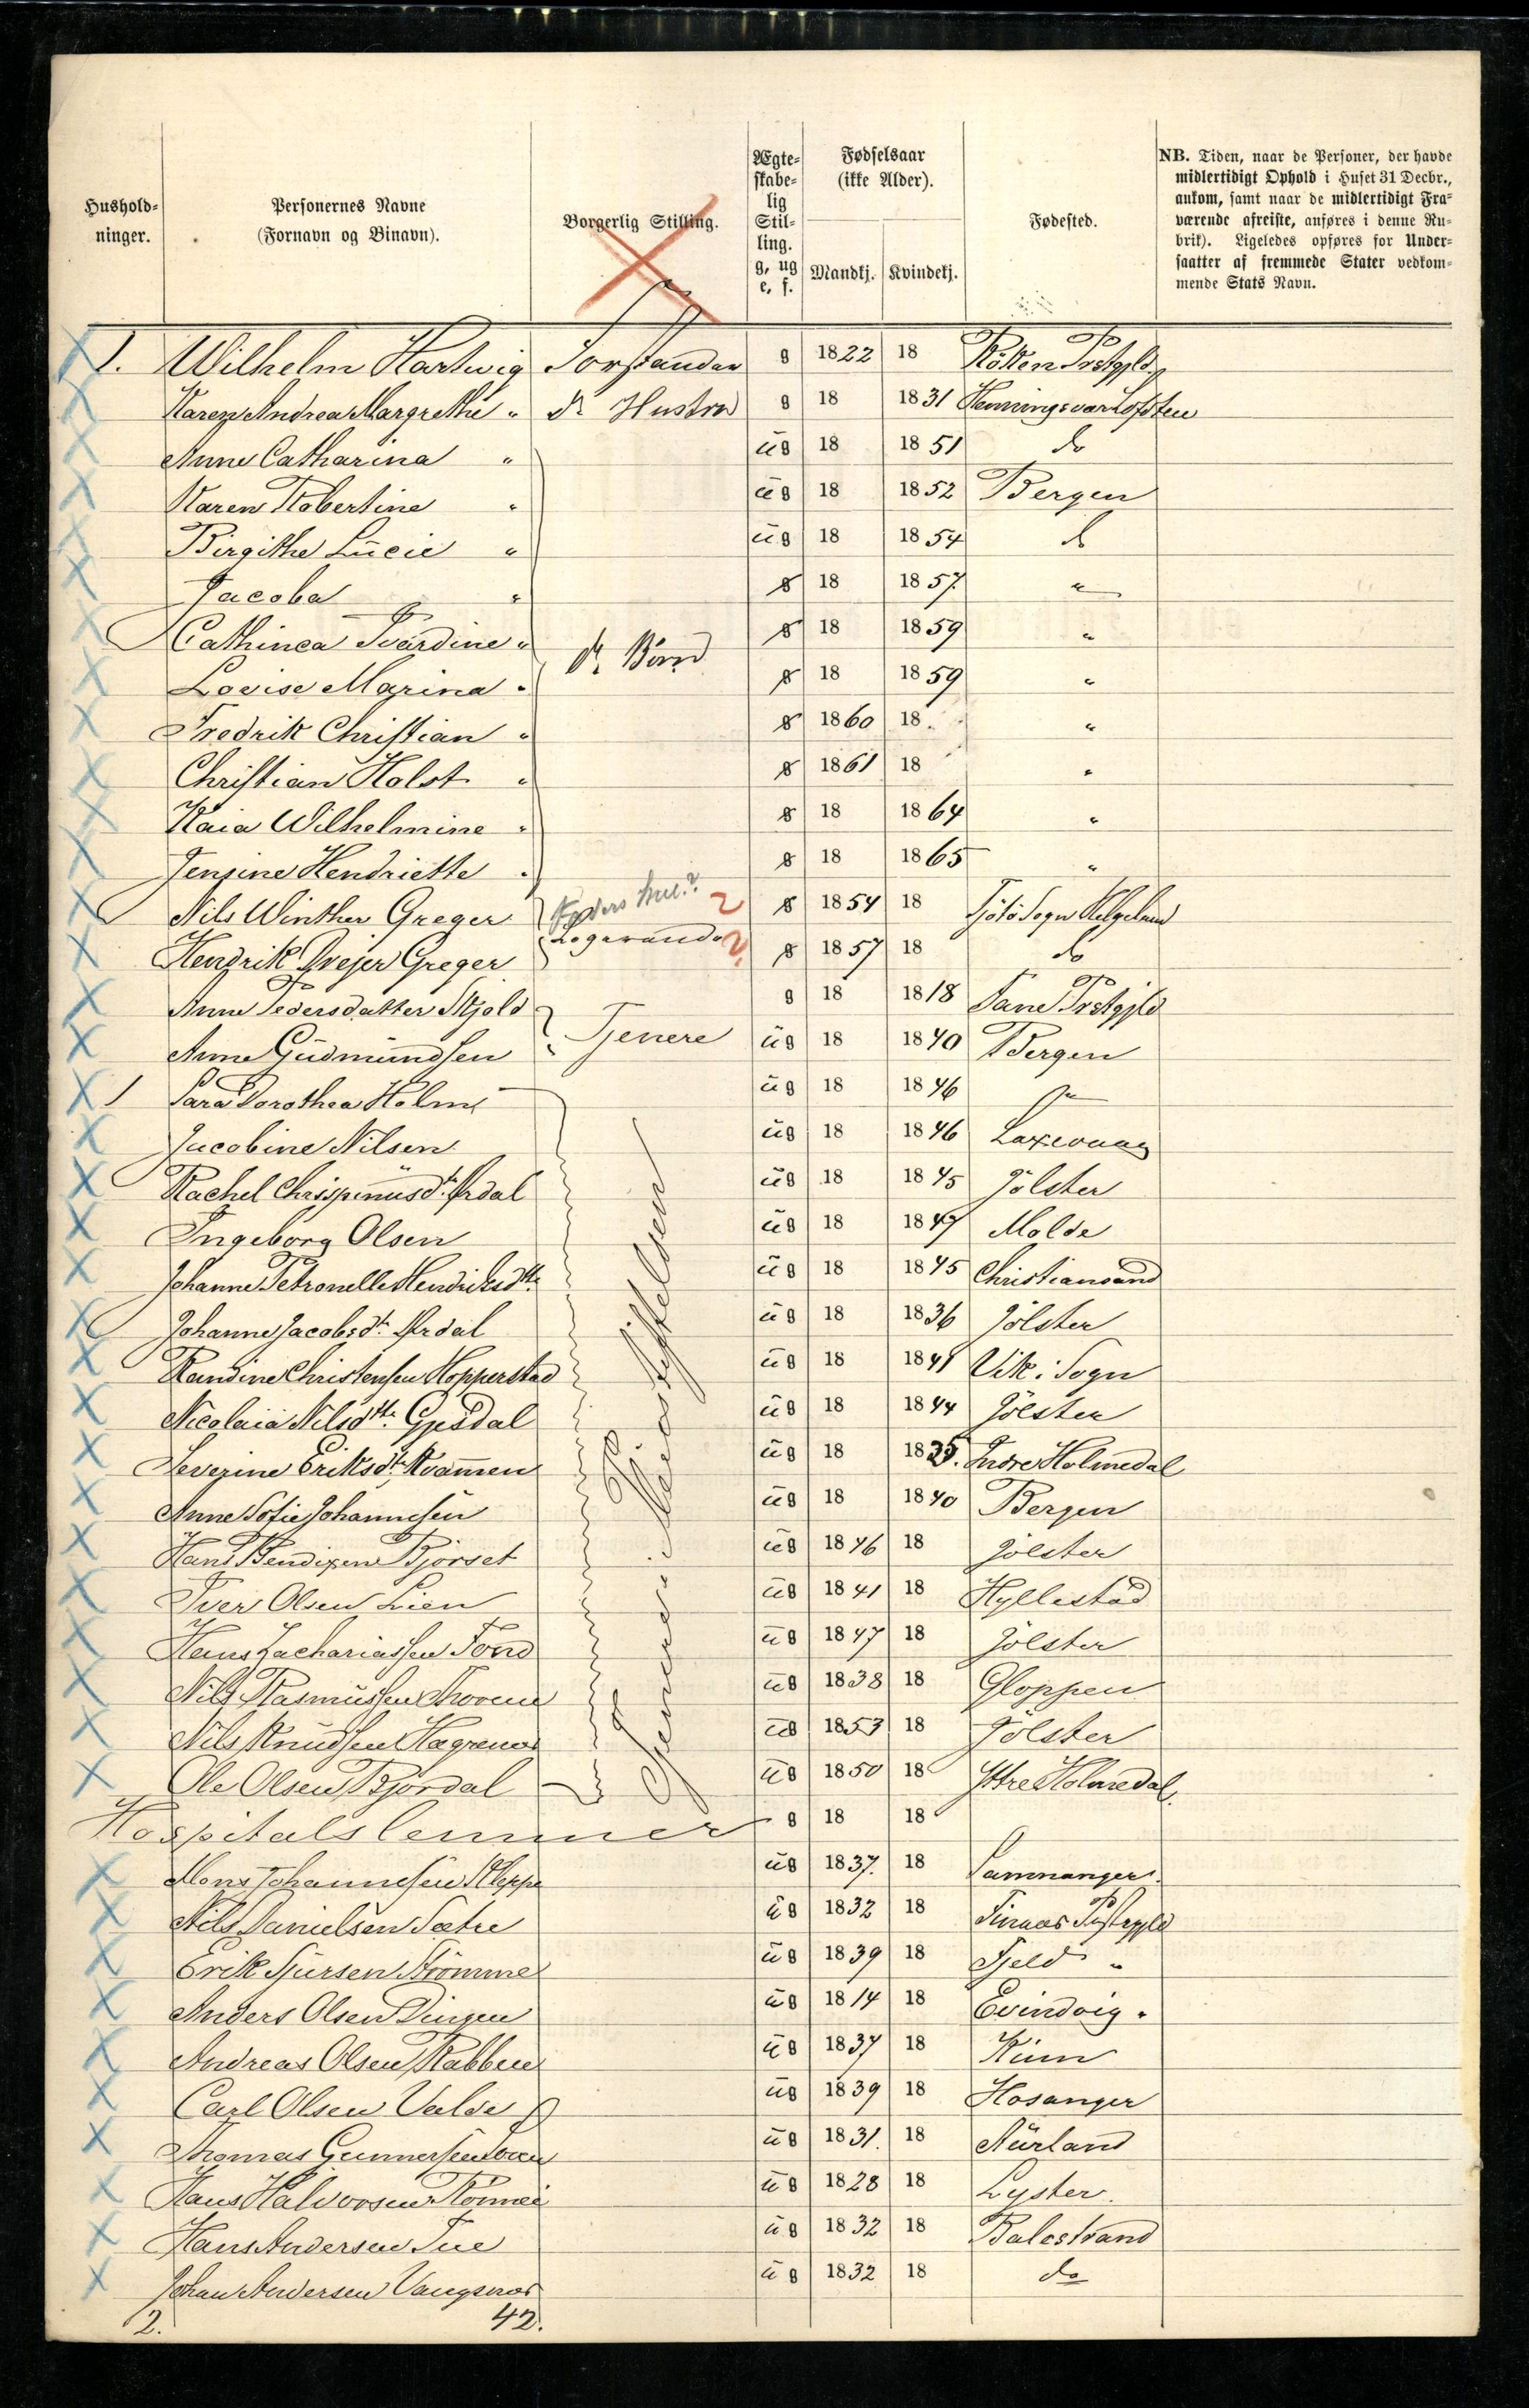 Hushold-
ninger.
Personernes Navne
(Fornavn og Binavn).
Borgerlig Stilling.
Ægte-
skabe-
lig
Stil-
ling.
g, ug
e, f.
Fødselsaar
(ikke Alder).
Mandkj. Kvindekj.
Fødested.
NB. Tiden, naar de Personer, der havde
midlertidigt Ophold i Huset 31 Decbr.,
ankom, samt naar de midlertidigt Fra-
værende afreiste, anføres i denne Ru-
brik). Ligeledes opføres for Under-
saatter af fremmede Stater vedkom-
mende Stats Navn.
1. Wilhelm Hartwig Forstander g 1822 18 Röken Prstgjld
Karen Andrea Margrethe " Ds Hustru g 18 1831 Henningsvær Lofoten
Anne Catharina " ug 18 1851 do
Karen Robertine " ug 18 1852 Bergen
Birgithe Lucie " ug 18 1854 do
Jacoba " 18 1857. "
Cathinca Tvardine " 18 1859 "
ds Börn
Lovise Marina " 18 1859 "
Fredrik Christian " 1860 18 "
Christian Holst " 1861 18 "
Kaia Wilhelmine " 18 1864 "
Jensine Hendriette " 18 1865 "
Nils Winther Greger Logerende 2 1854 18 Tjötö Sogn Helgeland
Hendrik Dreyer Greger 2. 1857 18 do
Anne Pedersdatter Skjold g 18 1818 Fane Prstgjld
Anne Gudmundsen Tjenere ug 18 1840 Bergen
1 Sara Dorothea Holm ug 18 1846
Jacobine Nilsen ug 18 1846 Laxevaag
Rachel Chrispinusdt. Årdal ug 18 1845 Jölster
Ingeborg Olsen ug 18 1847 Molde
Johanne Petronelle Hendriksdtr. ug 18 1845 Christiansand
Johanne Jacobsdt. Årdal ug 18 1836 Jölster
Randine Christensen Hopperstad ug 18 1841 Vik i Sogn
Nicolaia Nilsdtr. Gjesdal ug 18 1844 Jölster
Severine Eriksdt. Kvammen ug 18 1835. Indre Holmedal
Anne Sofie Johannesen ug 18 1840 Bergen
Hans Bendixen Bjorset ug 1846 18 Jölster
Iver Olsen Lien ug 1841 18 Hyllestad
Hans Zachariassen Fond ug 1847 18 Jölster
Nils Rasmussen ug 1838 18 Gloppen
Nils Knudsen ug 1853 18 Jölster
Ole Olsen Bjordal ug 1850 18 Ytre Holmedal.
Tjenere i Pleiestiftelsen
Hospitalslemmer g 18 18
Mons Johannesen Kleppe ug 1837. 18 Samnanger.
Nils Danielsen Sætre ug 1832 18 Finaas Prstgjld
Erik Sjursen Strömme ug 1839 18 Fjeld "
Anders Olsen Dingen ug 1814 18 Evindvig "
Andreas Olsen Rabben ug 1837 18 Kinn
Carl Olsen Valde ug 1839 18 Hosanger
Thomas Gunnersen ug 1831. 18 Aurland
Hans Halvorsen ug 1828 18 Lyster.
Hans Andersen Tue ug 1832 18 Balestrand
Johan Andersen Vangsnæs ug 1832 18 do
2. 42.